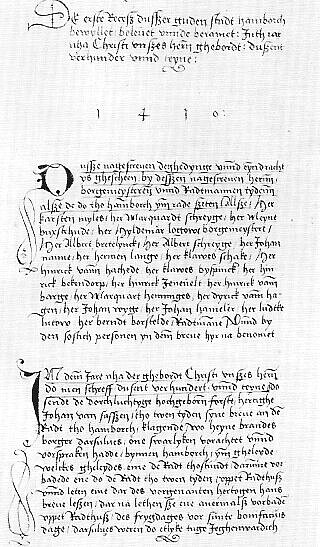 De erste Recesz dusszer guden stadt hamborch
bewyllet belevet unde beramet: In th iar
nha Christi unszes herñ ghebordt: dusent
verhunder unnd teyne:
1 4 1 0:
Dusze nageschreven deghedynge unnd eyndracht
ys gheschen by deszen nageschreven herrñ
borgemeysterñ unnd Radtmannen tydeñ
alsze do do tho hamborch ym rade szeten Alsze: her
karsten myles, her Marquardt schreyge, her Meyne
buxstehude, her hyldemar lopow borgemeyster,
her Albert bretelynck, her Albert schreyge, her Johan
nanne, her hermen lange, her klawes schoke, her
hinrick vam hachede, her klawes byspinck, her hin
rick bekendorp, her hinrick Jenevelt, her hinrick vam
barge, her Marquart hennynges, her dyrick vam ha
gen, her Johan wyge, her Johan hameler, her ludeke
lutow, her berndt borstelde Radtmane Unnd by
den sostich personen yn dem breve hyr na benomet
IN dem Jare nha der ghebordt Christi unszes herñ
do men schreff dusent verhundert, unnd teyne do
sende de dorchluchtyge hochgeborn forste, herthoge
Johan van sassen, tho twen tyden syne breve an den
Radt tho hamborch, klagende, wo heyne brandes
borger darsulves, one swarlyken vorachtet unnd
vorspraken hadde, bynnen hamborch, ym gheleyde
welckes gheleydes eme de Radt thostundt, darumme vor
badede ene do de Radt tho twen tyden, uppet Radthusz
unnd leten eme dar des vorgenanten hertogen hans
breve leszen, dar na lethen sze ene anermalsz vorbaden
uppet Radthusz, des frygdages vor sunte bonifacius
dage, darsulves weren do etlyke tuge Jeghenwardich